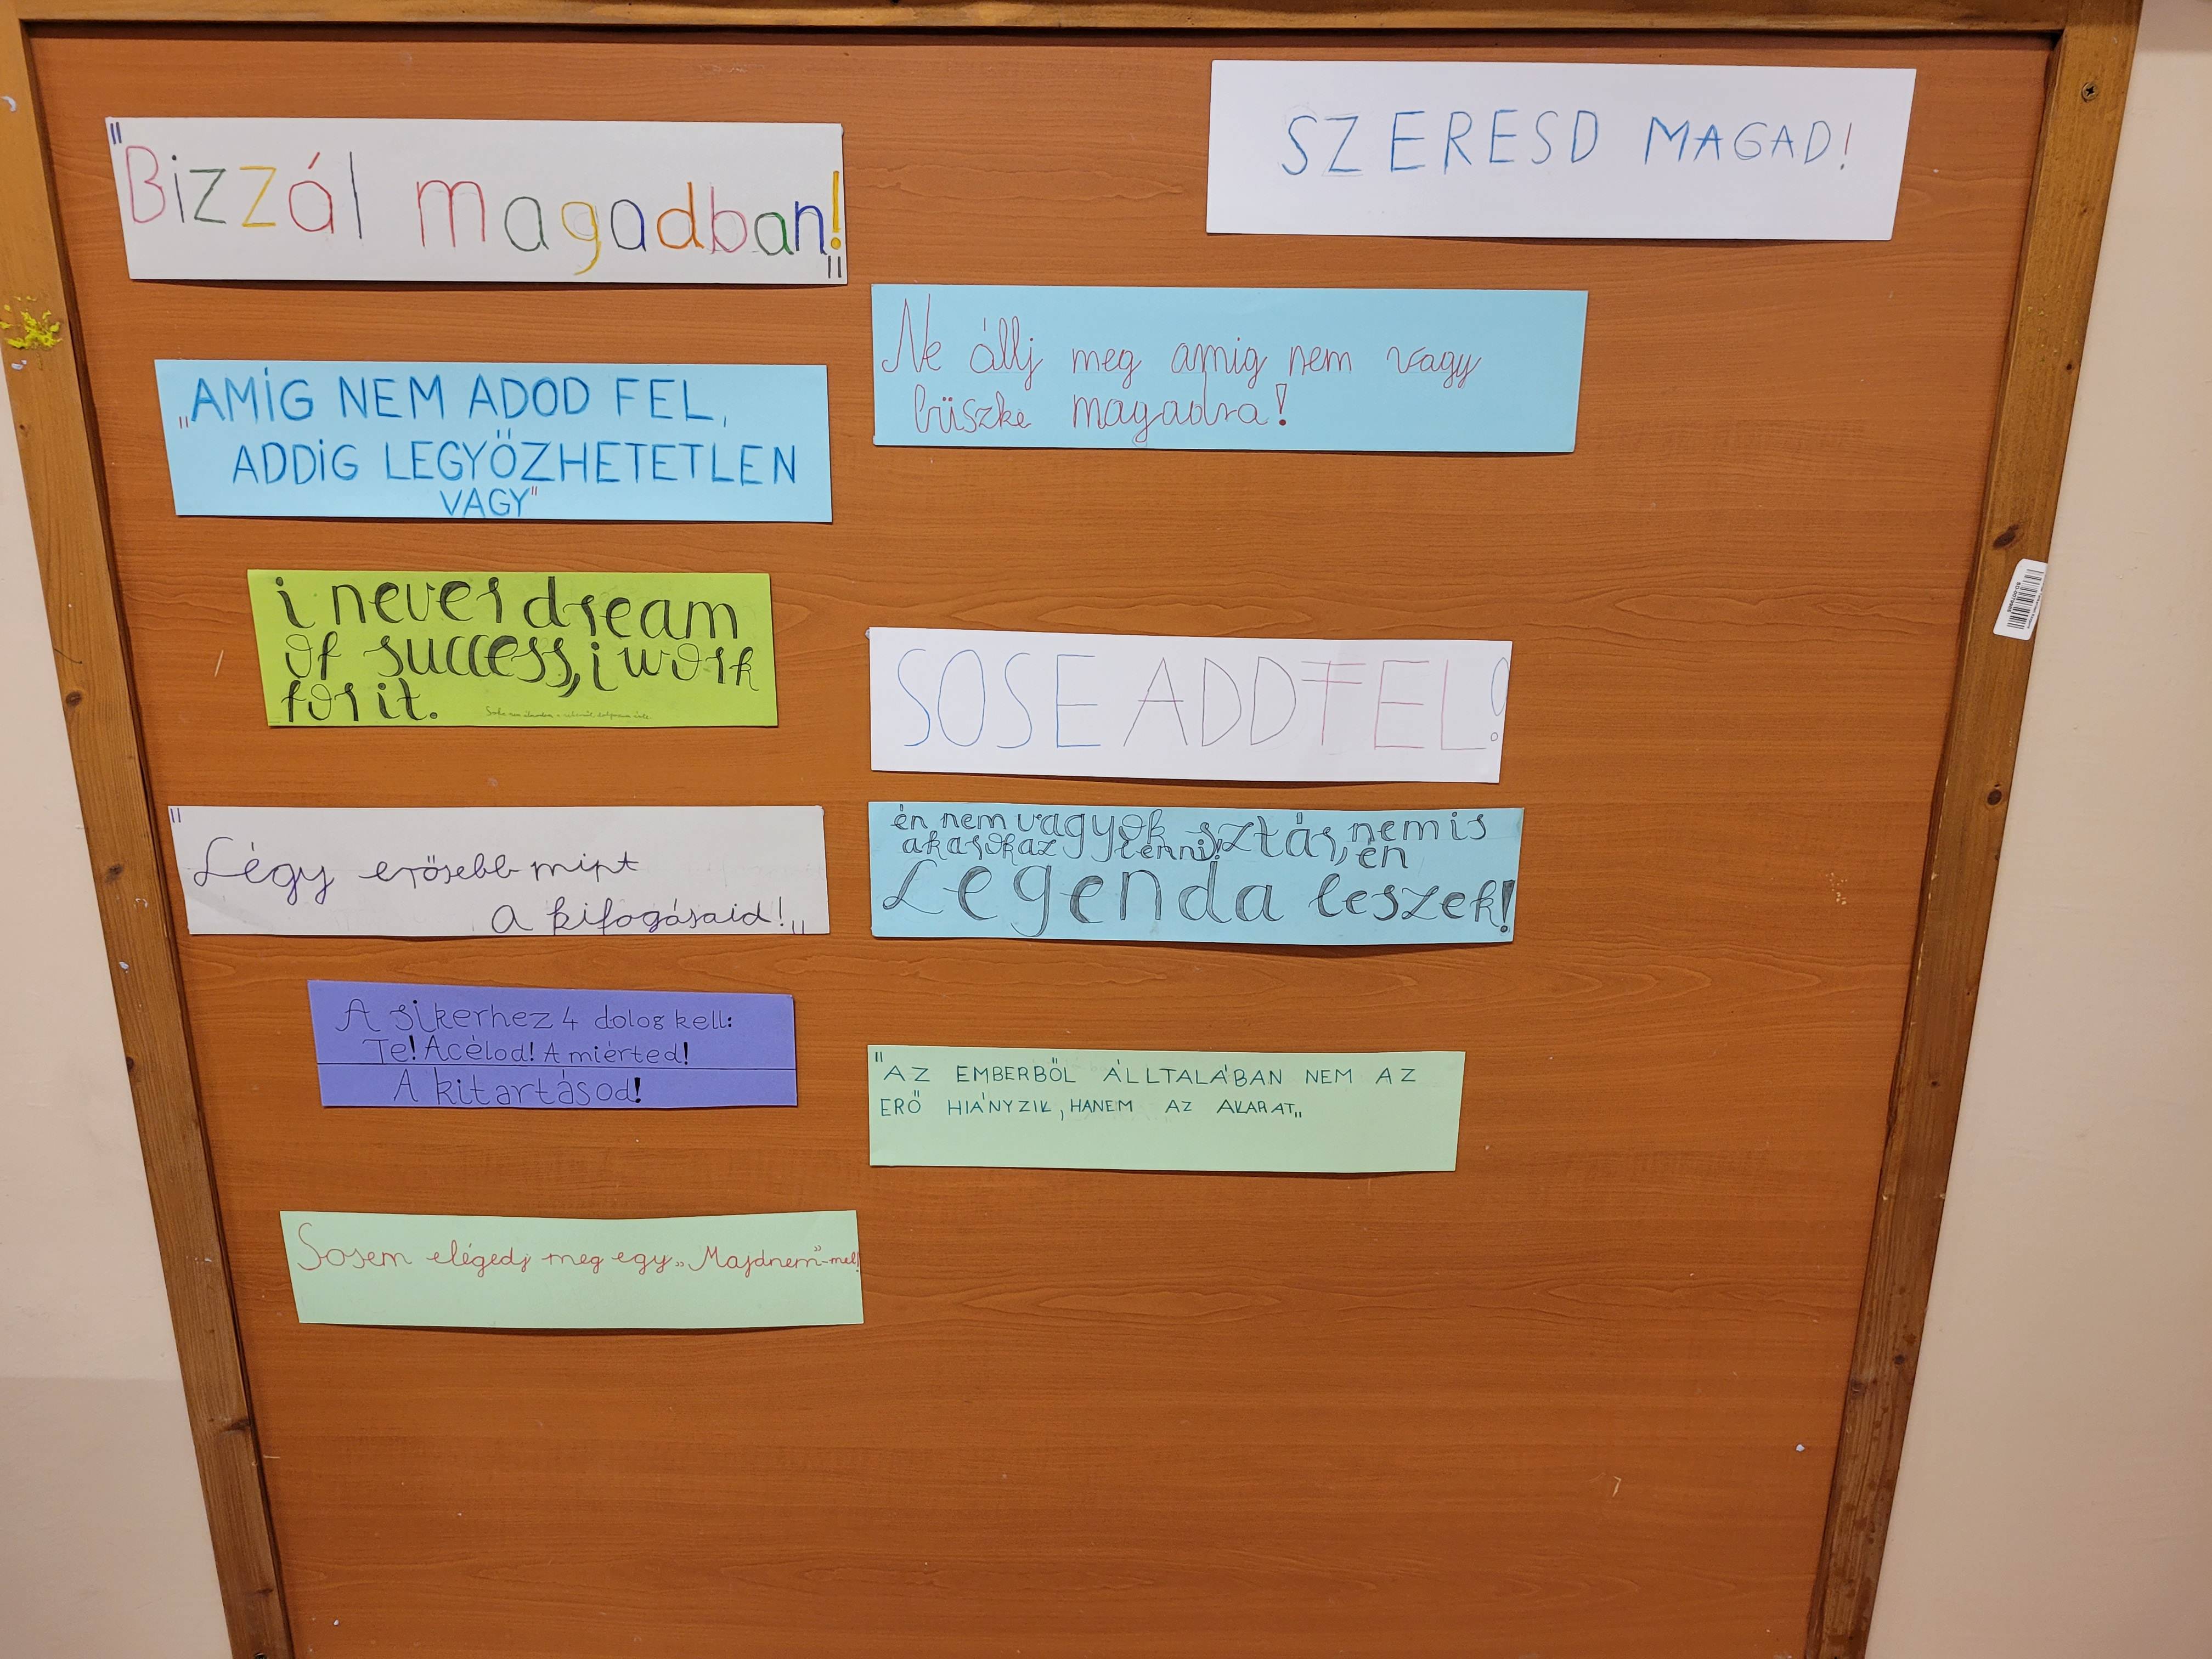 "Bizzál magadban!"
SZERESD MAGAD!
Ne állj meg amig nem vagy
büszke magadra!
„AMÍG NEM ADOD FEL,
ADDIG LEGYŐZHETETLEN
VAGY"
i never dream
of success, i work
for it.
SOSE ADD FEL!
"Légy erősebb mint
a kifogásaid!„
én nem vagyok sztár, nem is
akarok az lenni! én
Legenda leszek!
A sikerhez 4 dolog kell:
Te! A célod! A miérted!
A kitartásod!
"AZ EMBERBŐL ÁLLTALÁBAN NEM AZ
ERŐ HIÁNYZIK, HANEM AZ AKARAT„
Sosem elégedj meg egy „Majdnem"-mel!